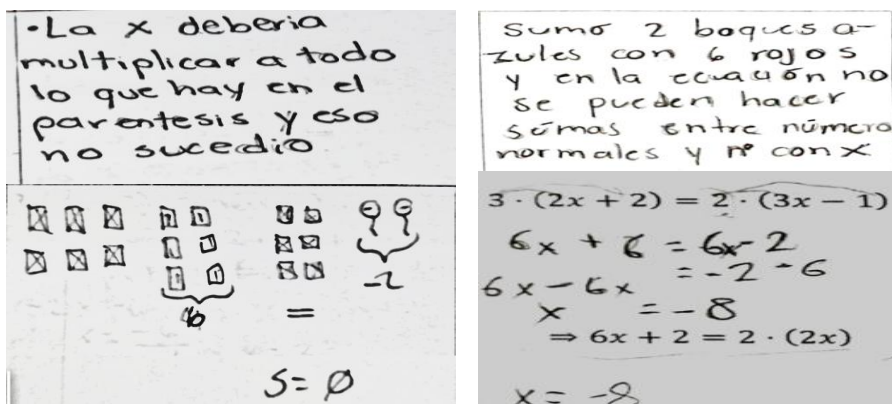 ·La x deberia
multiplicar a todo
lo que hay en el
parentesis y eso
no sucedio
6
-2
=
S= Ø
Sumo 2 boques a-
zules con 6 rojos
y en la ecuación no
se pueden hacer
sumas entre número
normales y nº con x
3 · (2x + 2) = 2 · (3x − 1)
6x + 6 = 6x - 2
6x - 6x = -2 - 6
x = - 8
⇒ 6x + 2 = 2 · (2x)
x = -8